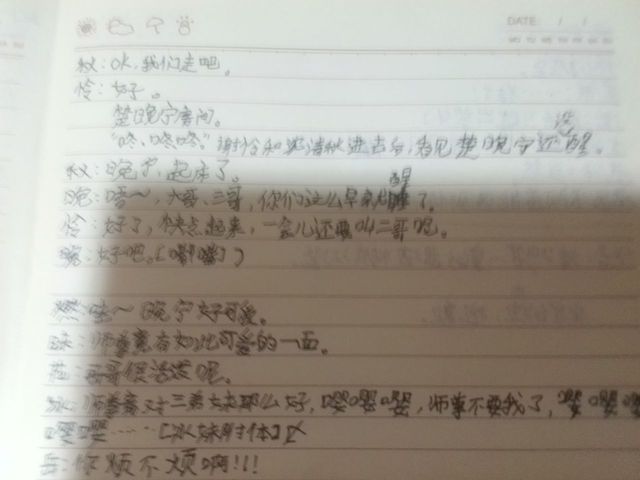 DATE / /
秋：OK，我们走吧。
怜：好。
楚晚宁房间。
“咚、咚咚。”谢怜和沈清秋进去后，看见楚晚宁还没醒。
秋：晚宁，起床了。
晚：唔～，大哥、三哥，你们这么早就醒了。
怜：好了，快点起来，一会儿还要叫二哥呢。
晚：好吧。（嘟嘴）
燃：哇～晚宁好可爱。
昧：师尊竟有如此可爱的一面。
哥哥很活泼呢。
冰：师尊对三弟妹那么好，嘤嘤嘤，师尊不要我了，嘤嘤嘤
嘤嘤……[冰妹附体]
岳：你烦不烦啊!!!